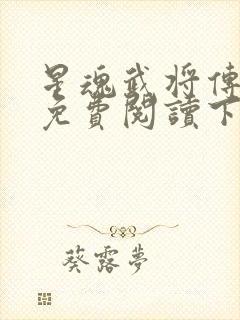 星魂武将傳
免費閱讀下
葵露夢